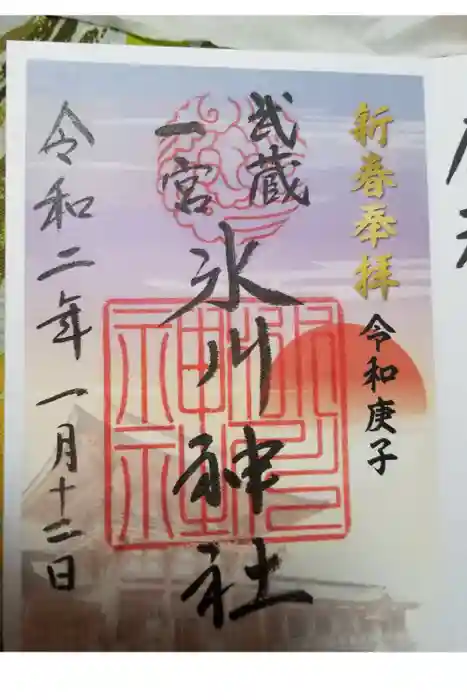 新春奉拝
令和庚子
武蔵
一宮
氷川神社
令和二年一月十二日
氷川
神社